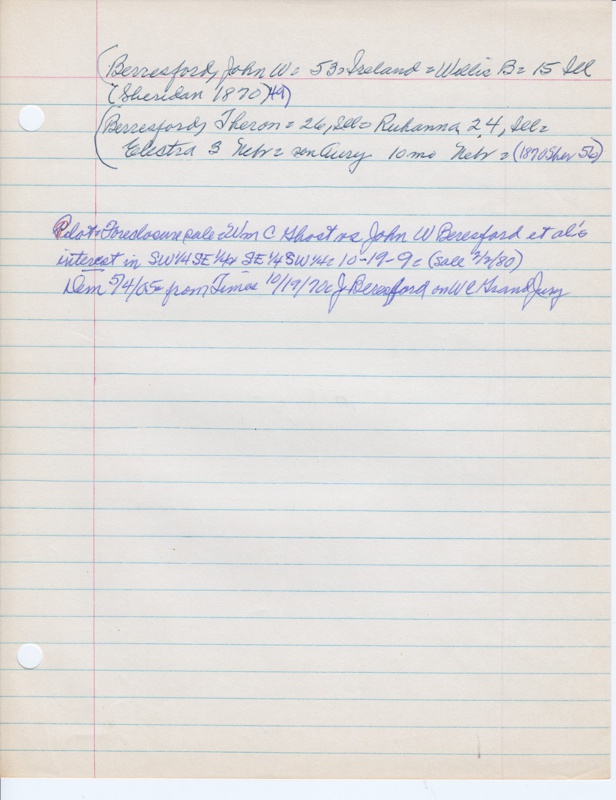 (Berresford, John W = 53 = Ireland = Willis B = 15 Ill
(Sheridan 1870) 49)
(Berresford, Theron = 26, Ill = Ruhanna 24, Ill =
Electra 3 Nebr = son Avery 10 mo Nebr = (1870 Sher 56)
Pilot = Foreclosure sale = Wm C Ghost vs John W Beresford et al's
interest in SW¼ SE¼ & SE¼ SW¼ = 10-19-9 = (sale /80)
Dem 5/4/05 = from Times 10/19/70 = J Beresford on W C Grand Jury